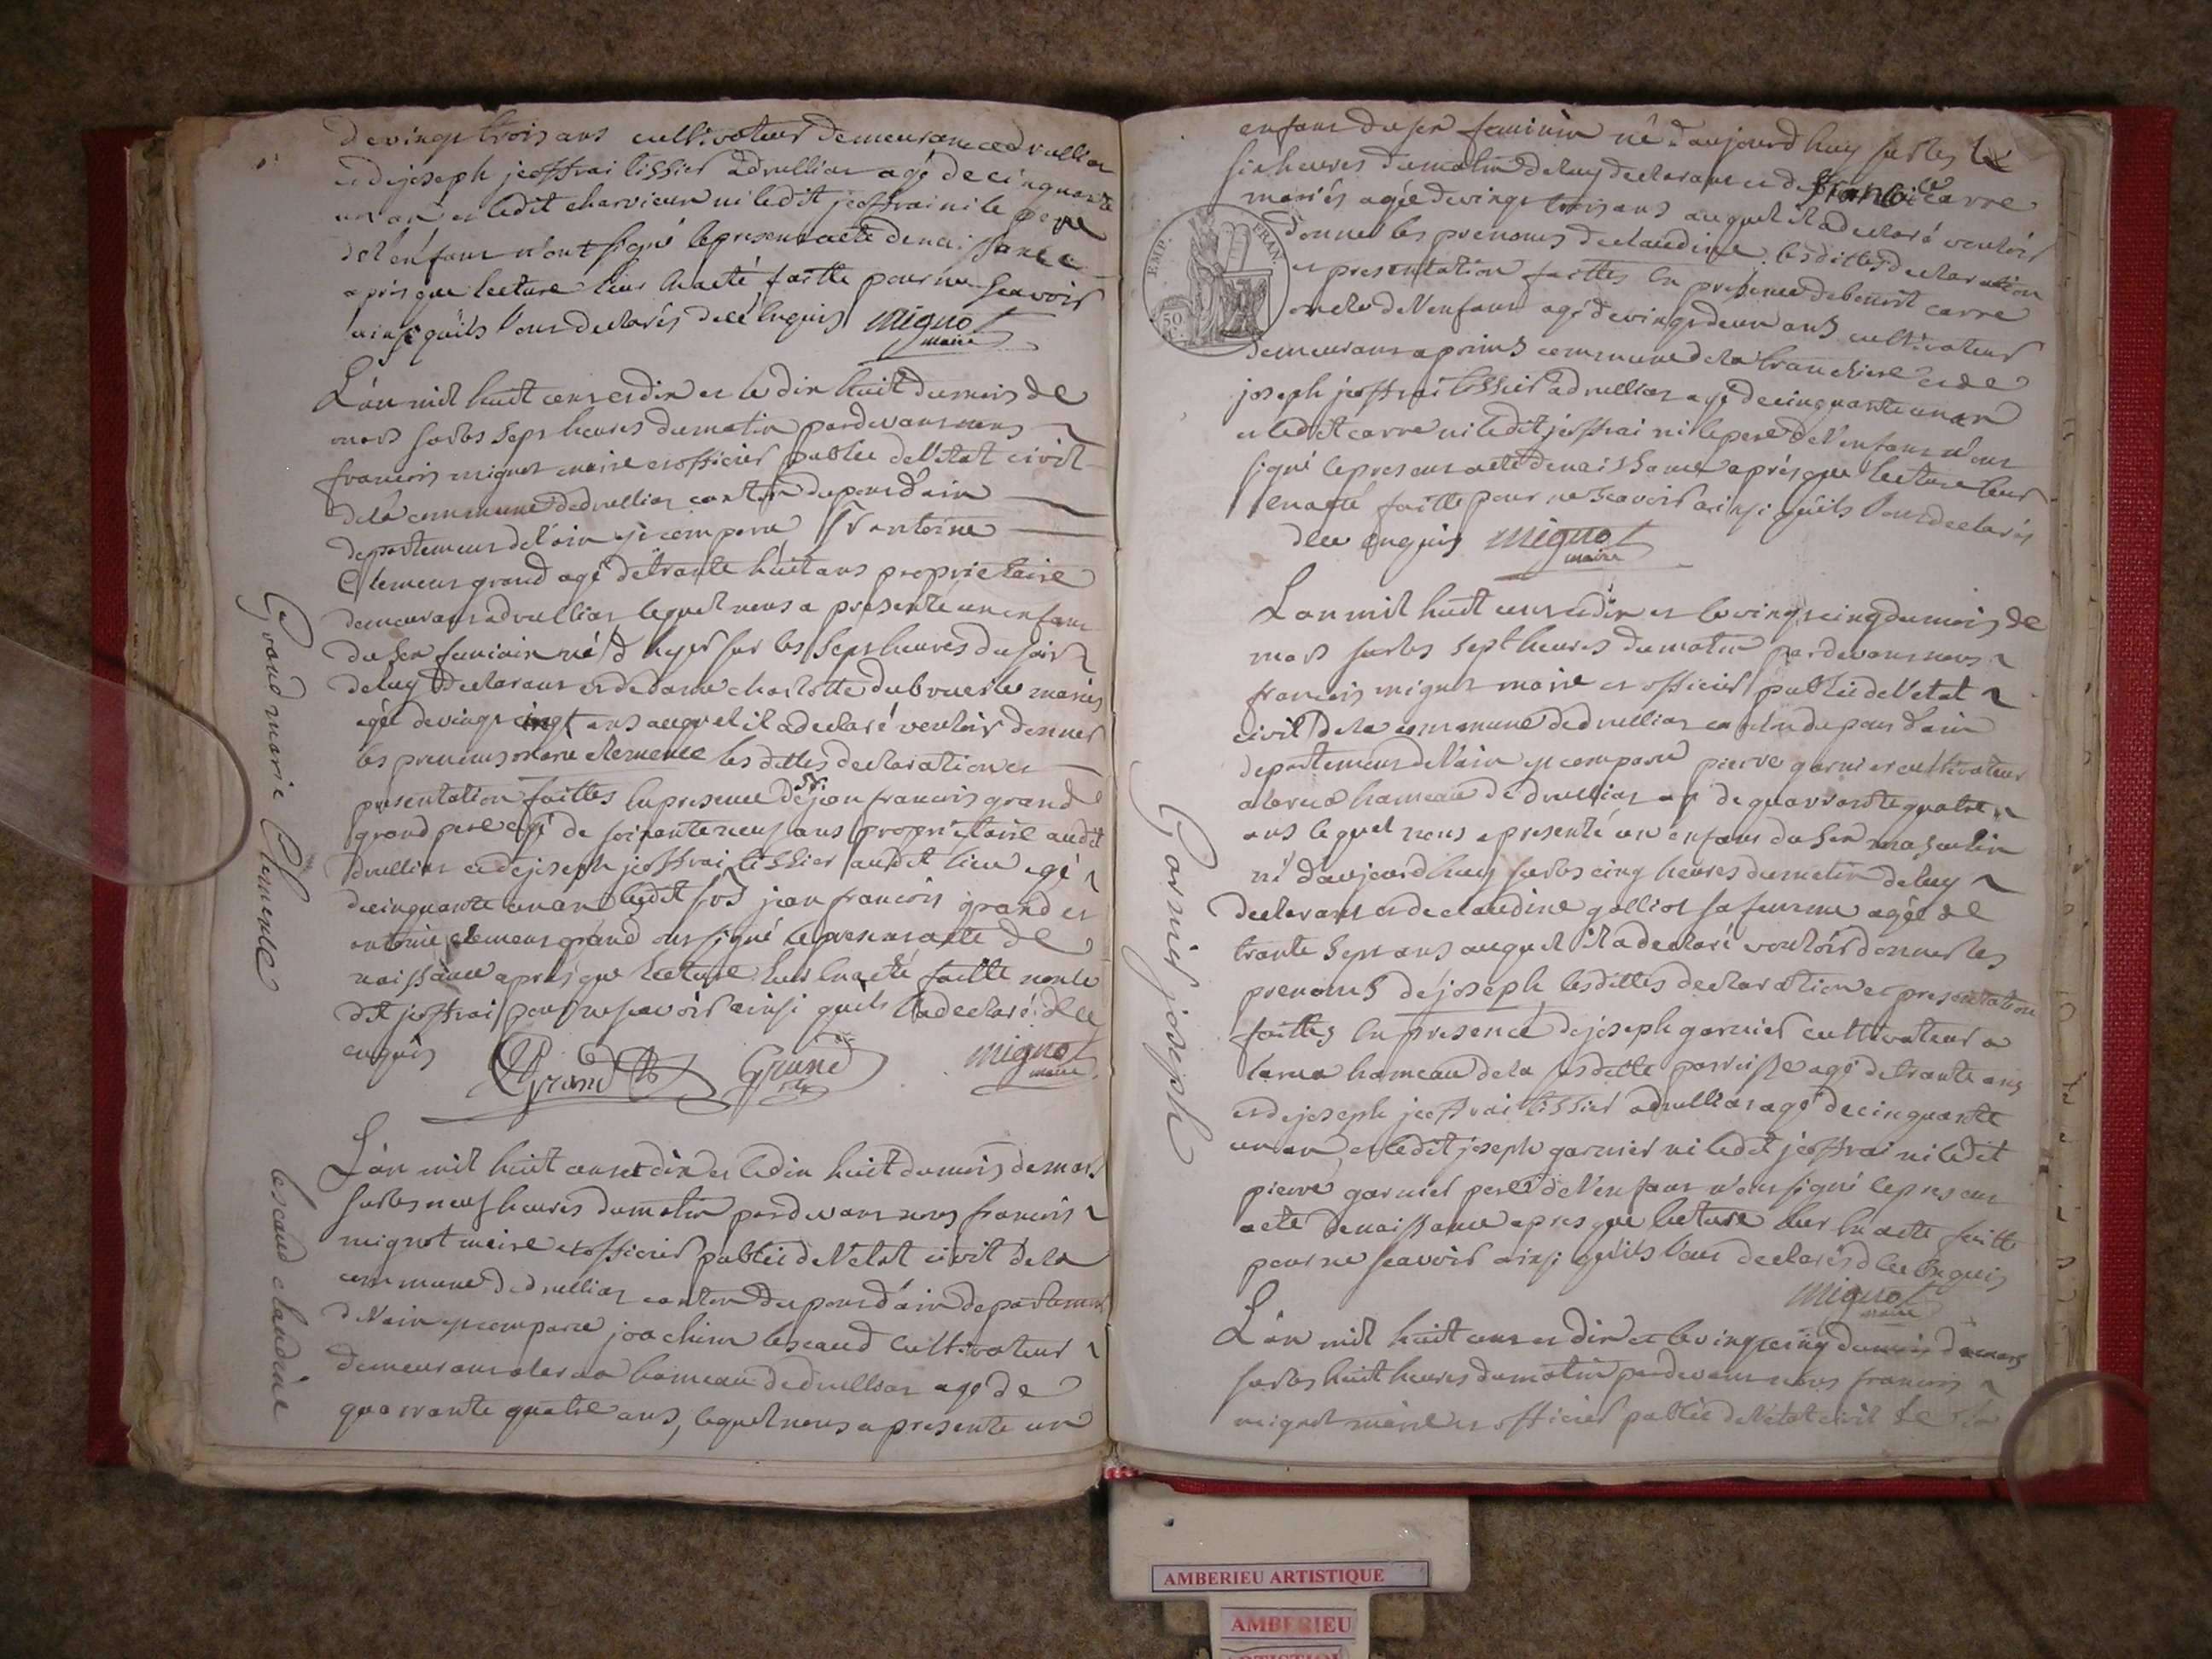 de vingt trois ans cultivateur demeurance a drullias
et de joseph jeoffrai tissier a drullias agé de cinquante
un an et ledit charvieux ni ledit jeoffrai ni le pere
de l'enfant n'ont signé le present acte de naissance
après que lecture leur en a eté faitte pour ne scavoir
ainsi quils l'ont declarés de ce enquis mignot
maire
L'an mil huit cent et dix et le dix huit du mois de
mars sur les sept heures du matin pardevant nous
francois mignot maire et officier public de l'etat civil
de la commune de drullias canton du pont d'ain
departement de l'ain est comparu Sr antoine
Clement grand agé de trante huit ans proprietaire
demeurant a drullias lequel nous a presenté un enfant
du sex feminin né d'hyer sur les sept heures du soir
de luy declarant et de dame charlotte dubrueille mariés
agée de vingt cinq ans auquel il a declaré vouloir donner
les prenoms marie clemence les dittes declaration et
presentation faittes en presence de Sr jean francois grand
grand pere agé de soixante neuf ans proprietaire audit
drullias et de joseph jeoffrai tissier audit lieu agé
de cinquante un an ledit Sr jean francois grand et
antoine clement grand ont signé le present acte de
naissance après que lecture leur en a eté faitte non le
dit jeoffrai pour ne scavoir ainsi quil l'a declaré de ce
enquis Grand Grand mignot
maire
Grand marie Clemence
L'an mil huit cent et dix et le dix huit du mois de mars
sur les neuf heures du matin pardevant nous francois
mignot maire et officier public de l'etat civil de la
commune de drullias canton du pont d'ain departement
de l'ain est comparu joachim lescaud cultivateur
demeurant a larua hameau de drullias agé de
quarrante quatre ans, lequel nous a presenté un
lescaud claudine
enfant du sex feminin né d'aujourd'huy sur les
six heures du matin de luy declarant et de francoise carre
mariés agée de vingt trois ans auquel il a declaré vouloir
donner les prenoms de claudine les dittes declaration
et presentation faittes en presence de benoit carre
oncle de l'enfant agé de vingt deux ans cultivateur
demeurant a prins commune de la tranchiere et de
joseph jeoffrai tissier a drullias agé de cinquante un an
et ledit carre ni ledit jeoffrai ni le pere de l'enfant n'ont
signé le present acte de naissance après que lecture leur
en a eté faitte pour ne scavoir ainsi quils l'ont declarés
de ce enquis mignot
maire
EMP. FRAN.
50
L'an mil huit cent et dix et le vingt cinq du mois de
mars sur les sept heures du matin pardevant nous
francois mignot maire et officier public de l'etat
civil de la commune de drullias canton du pont d'ain
departement de l'ain est comparu pierre garnier cultivateur
a larua hameau de drullias agé de quarrante quatre
ans lequel nous a presenté un enfant du sex masculin
né d'aujourd'huy sur les cinq heures du matin de luy
declarant et de claudine golliot sa femme agée de
trante sept ans auquel il a declaré vouloir donner les
prenoms de joseph lesdittes declaration et presentation
faittes en presence de joseph garnier cultivateur a
larua hameau de la susditte parroisse agé de trante ans
et de joseph jeoffrai tissier a drullias agé de cinquante
un an et ledit joseph garnier ni ledit jeoffrai ni ledit
pierre garnier pere de l'enfant n'ont signé le present
acte de naissance apres que lecture leur en a eté faitte
pour ne scavoir ainsi quils l'ont declarés de ce enquis
mignot
maire
Garnier joseph
L'an mil huit cent et dix et le vingt cinq du mois de mars
sur les huit heures du matin pardevant nous francois
mignot maire et officier public de l'etat civil de la
AMBERIEU ARTISTIQUE
AMBERIEU
ARTISTIQUE